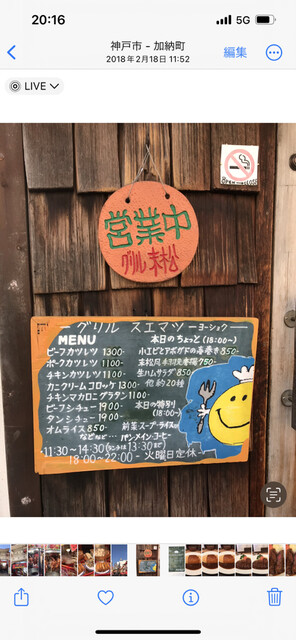 20:16
5G
神戸市 - 加納町
2018年2月18日 11:52
編集
LIVE
営業中
グリル末松
グリル スエマツ ーヨーショクー
MENU
ビーフカツレツ 1300-
ポークカツレツ 1100-
チキンカツレツ 1100-
カニクリームコロッケ 1350-
チキンマカロニグラタン 1100-
ビーフシチュー 1900-
タンシチュー 1900-
オムライス 850-
などなど…
本日のちょっと(18:00〜)
小エビとアボガドの春巻き 850-
生ハムサラダ 850-
他約20種
本日の特別
(18:00〜)
前菜・スープ・ライスor
パン・メイン・コーヒー
11:30〜14:30
13:30まで
18:00〜22:00 - 火曜日定休-